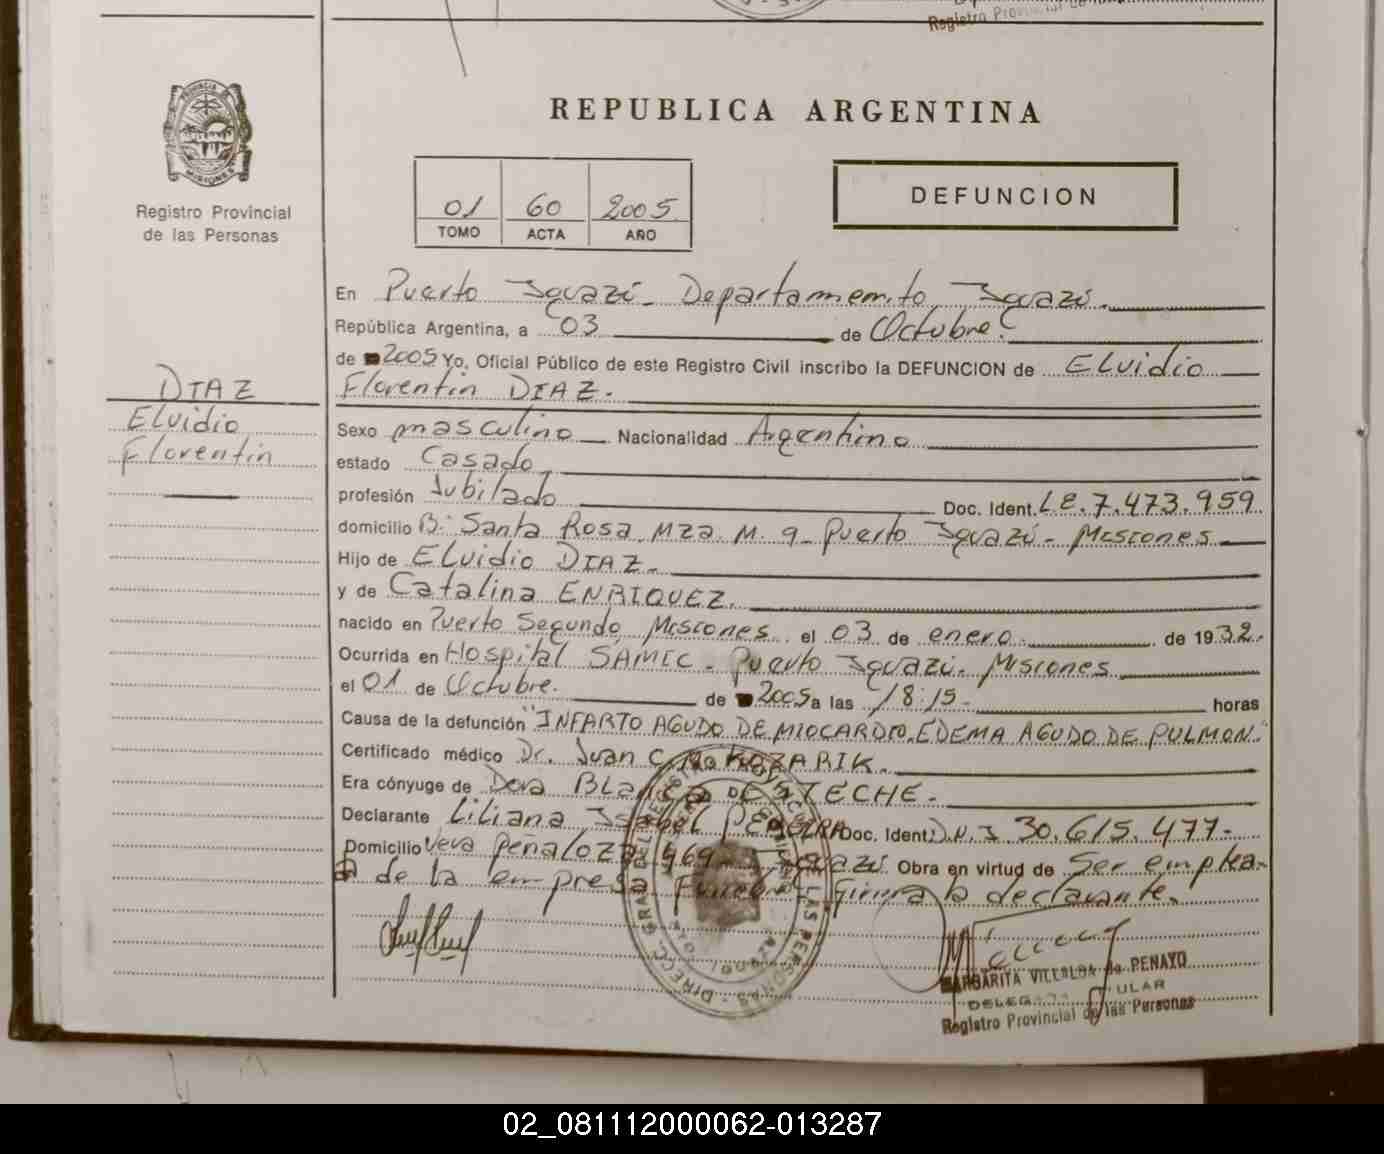 Registro Provincial
REPUBLICA ARGENTINA
PROVINCIA DE
MISIONES
Registro Provincial
de las Personas
DEFUNCION
01 60 2005
TOMO ACTA AÑO
En Puerto Iguazú - Departamento Iguazú.
República Argentina, a 03 de Octubre.
de 2005 Yo, Oficial Público de este Registro Civil inscribo la DEFUNCION de Elvidio
Florentin DIAZ.
DIAZ
Elvidio
Florentin
Sexo masculino Nacionalidad Argentino
estado Casado
profesión Jubilado Doc. Ident. L.E. 7.473.959
domicilio B: Santa Rosa Mza. M. 9 - Puerto Iguazú - Misiones
Hijo de Elvidio DIAZ.
y de Catalina ENRIQUEZ.
nacido en Puerto Segundo Misiones. el 03 de enero. de 1932.
Ocurrida en Hospital SAMIC - Puerto Iguazú. Misiones
el 01 de Octubre. de 2005 a las 18:15 - horas
Causa de la defunción "INFARTO AGUDO DE MIOCARDIO. EDEMA AGUDO DE PULMON."
Certificado médico Dr. Juan C.
Era cónyuge de Dora Blanca DE
Declarante Liliana Isabel Doc. Ident. D.N.I 30.615.477-
Domicilio Peñaloza Iguazú Obra en virtud de Ser emplea-
da de la empresa Funebre. Firma la declarante.
MARGARITA VILLALBA de PENAYO
DELEGADA TITULAR
Registro Provincial de las Personas
02_081112000062-013287